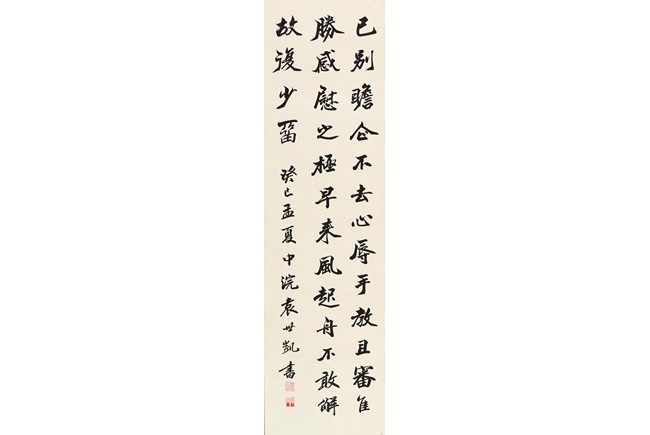 已别瞻企不去心辱手教且審佳
勝感慰之極早來風起舟不敢解
故復少留
癸巳孟夏中浣袁世凱書